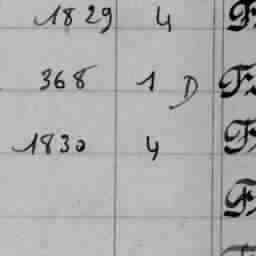 1829 4
368 1 D
1830 4